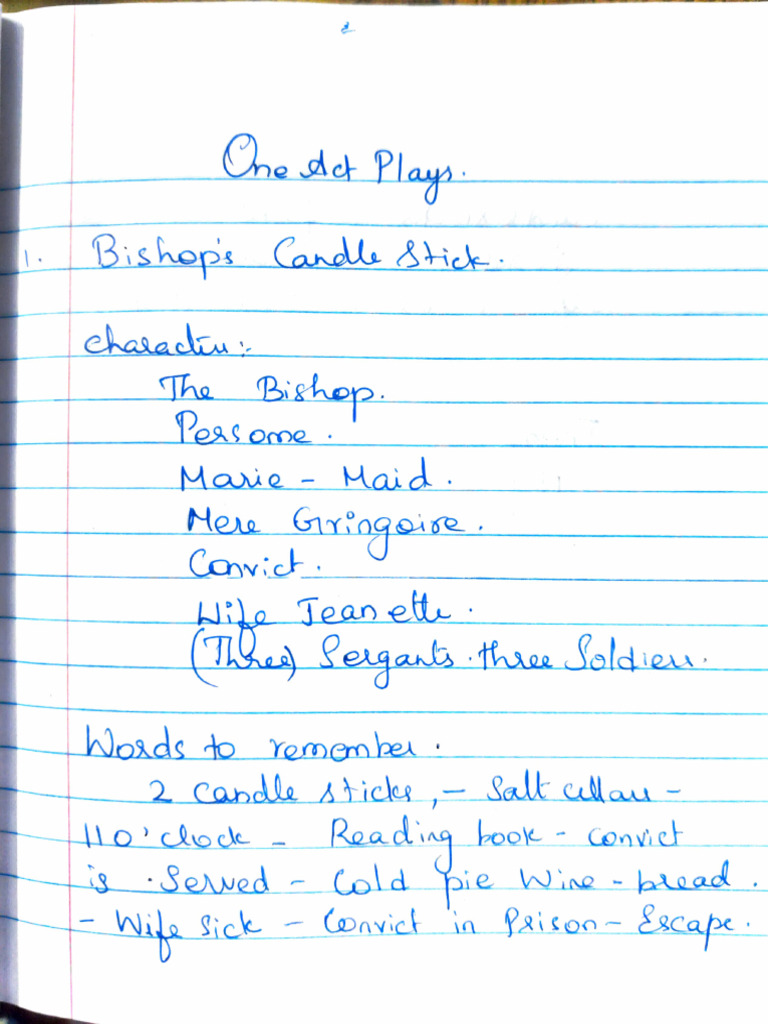 One Act Plays.
1. Bishop's Candle Stick.
Character:-
The Bishop.
Persome.
Marie - Maid.
Mere Gringoire.
Convict.
Wife Jeanette.
(Three) Sergants. three Soldiers.
Words to remember.
2 candle sticks, - Salt cellars -
11 o'clock - Reading book - convict
is . Served - Cold pie Wine - bread.
- Wife Sick - Convict in Prison - Escape.